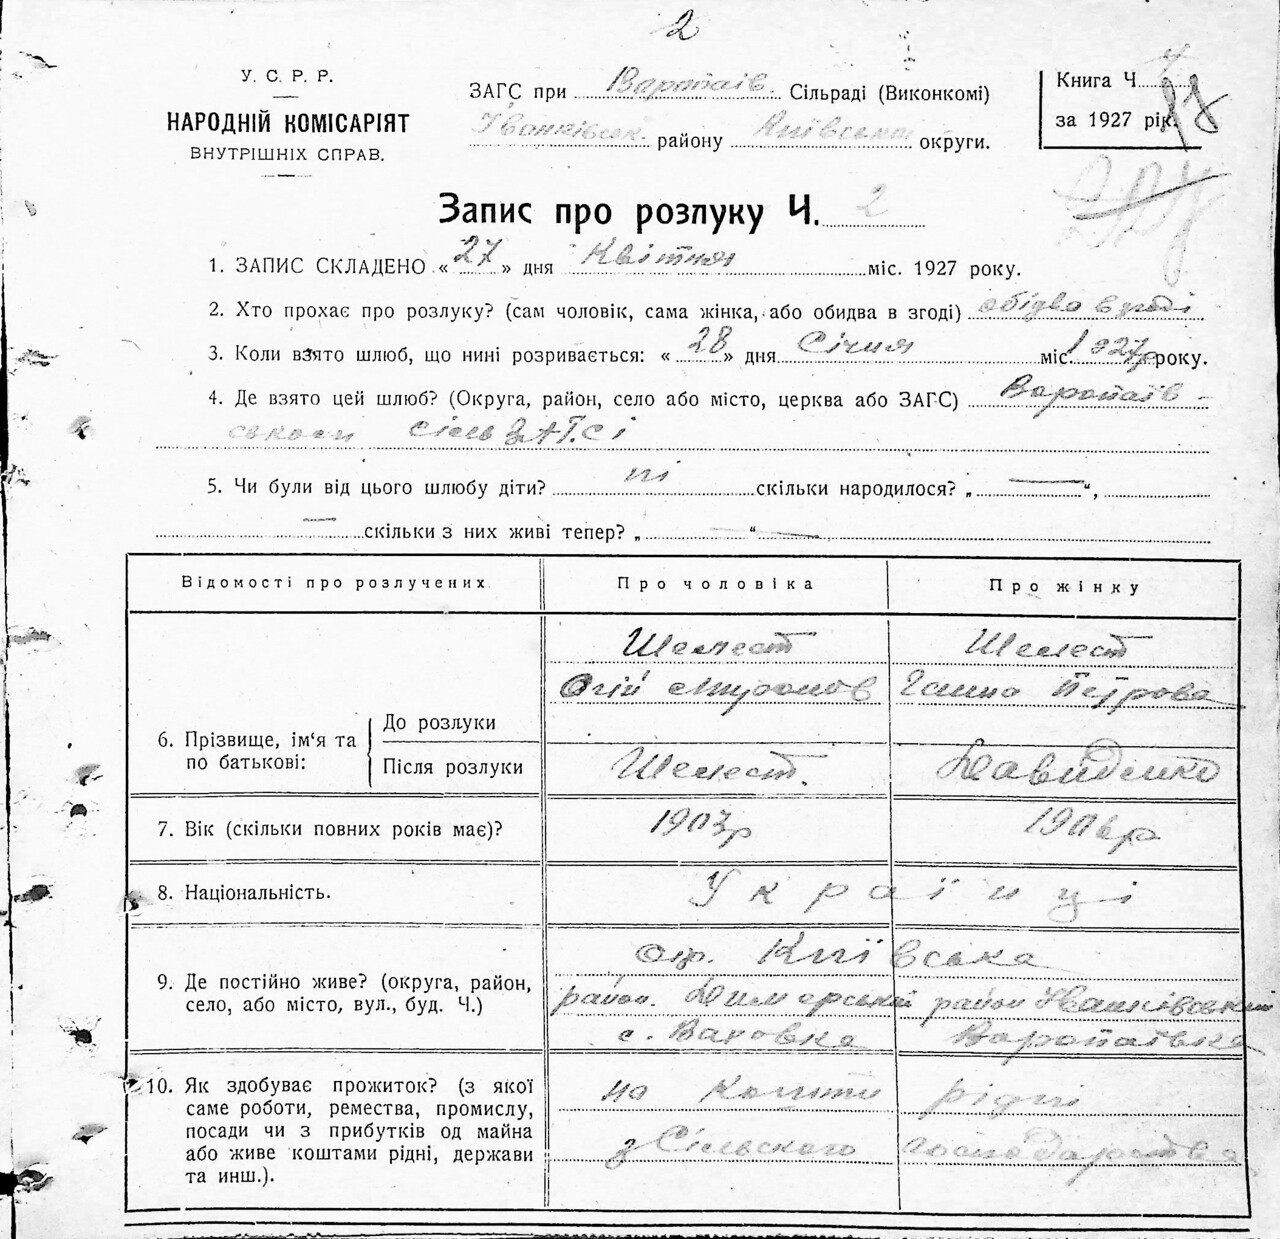 2
У. С. Р. Р.
НАРОДНІЙ КОМІСАРІЯТ
ВНУТРІШНІХ СПРАВ.
ЗАГС при Варопаїв. Сільраді (Виконкомі)
Іванківськ. району Київської округи.
Книга Ч.
за 1927 рік.
Запис про розлуку Ч. 2
1. ЗАПИС СКЛАДЕНО « 27 » дня Квітня міс. 1927 року.
2. Хто прохає про розлуку? (сам чоловік, сама жінка, або обидва в згоді) обідва в згоді
3. Коли взято шлюб, що нині розривається: « 28 » дня Січня міс. 1927р року.
4. Де взято цей шлюб? (Округа, район, село або місто, церква або ЗАГС) Воропаїв-
ськом сільЗАГСі
5. Чи були від цього шлюбу діти? ні скільки народилося? „ — “,
— скільки з них живі тепер? „ — “ —
Відомості про розлучених
Про чоловіка
Про жінку
6. Прізвище, ім‘я та по батькові:
До розлуки
Шелест
Шелест
Огій Миронов
Ганна Петрова
Після розлуки
Шелест.
Давиденко
7. Вік (скільки повних років має)?
1903р
1906р
8. Національність.
Українці
9. Де постійно живе? (округа, район,
село, або місто, вул., буд. Ч.)
окр. Київська
район. Димерський район Іванківський
с. Варовка Воропаївка
10. Як здобуває прожиток? (з якої
саме роботи, ремества, промислу,
посади чи з прибутків од майна
або живе коштами рідні, держави
та инш.).
на кошти рідні
з Сільского господарства